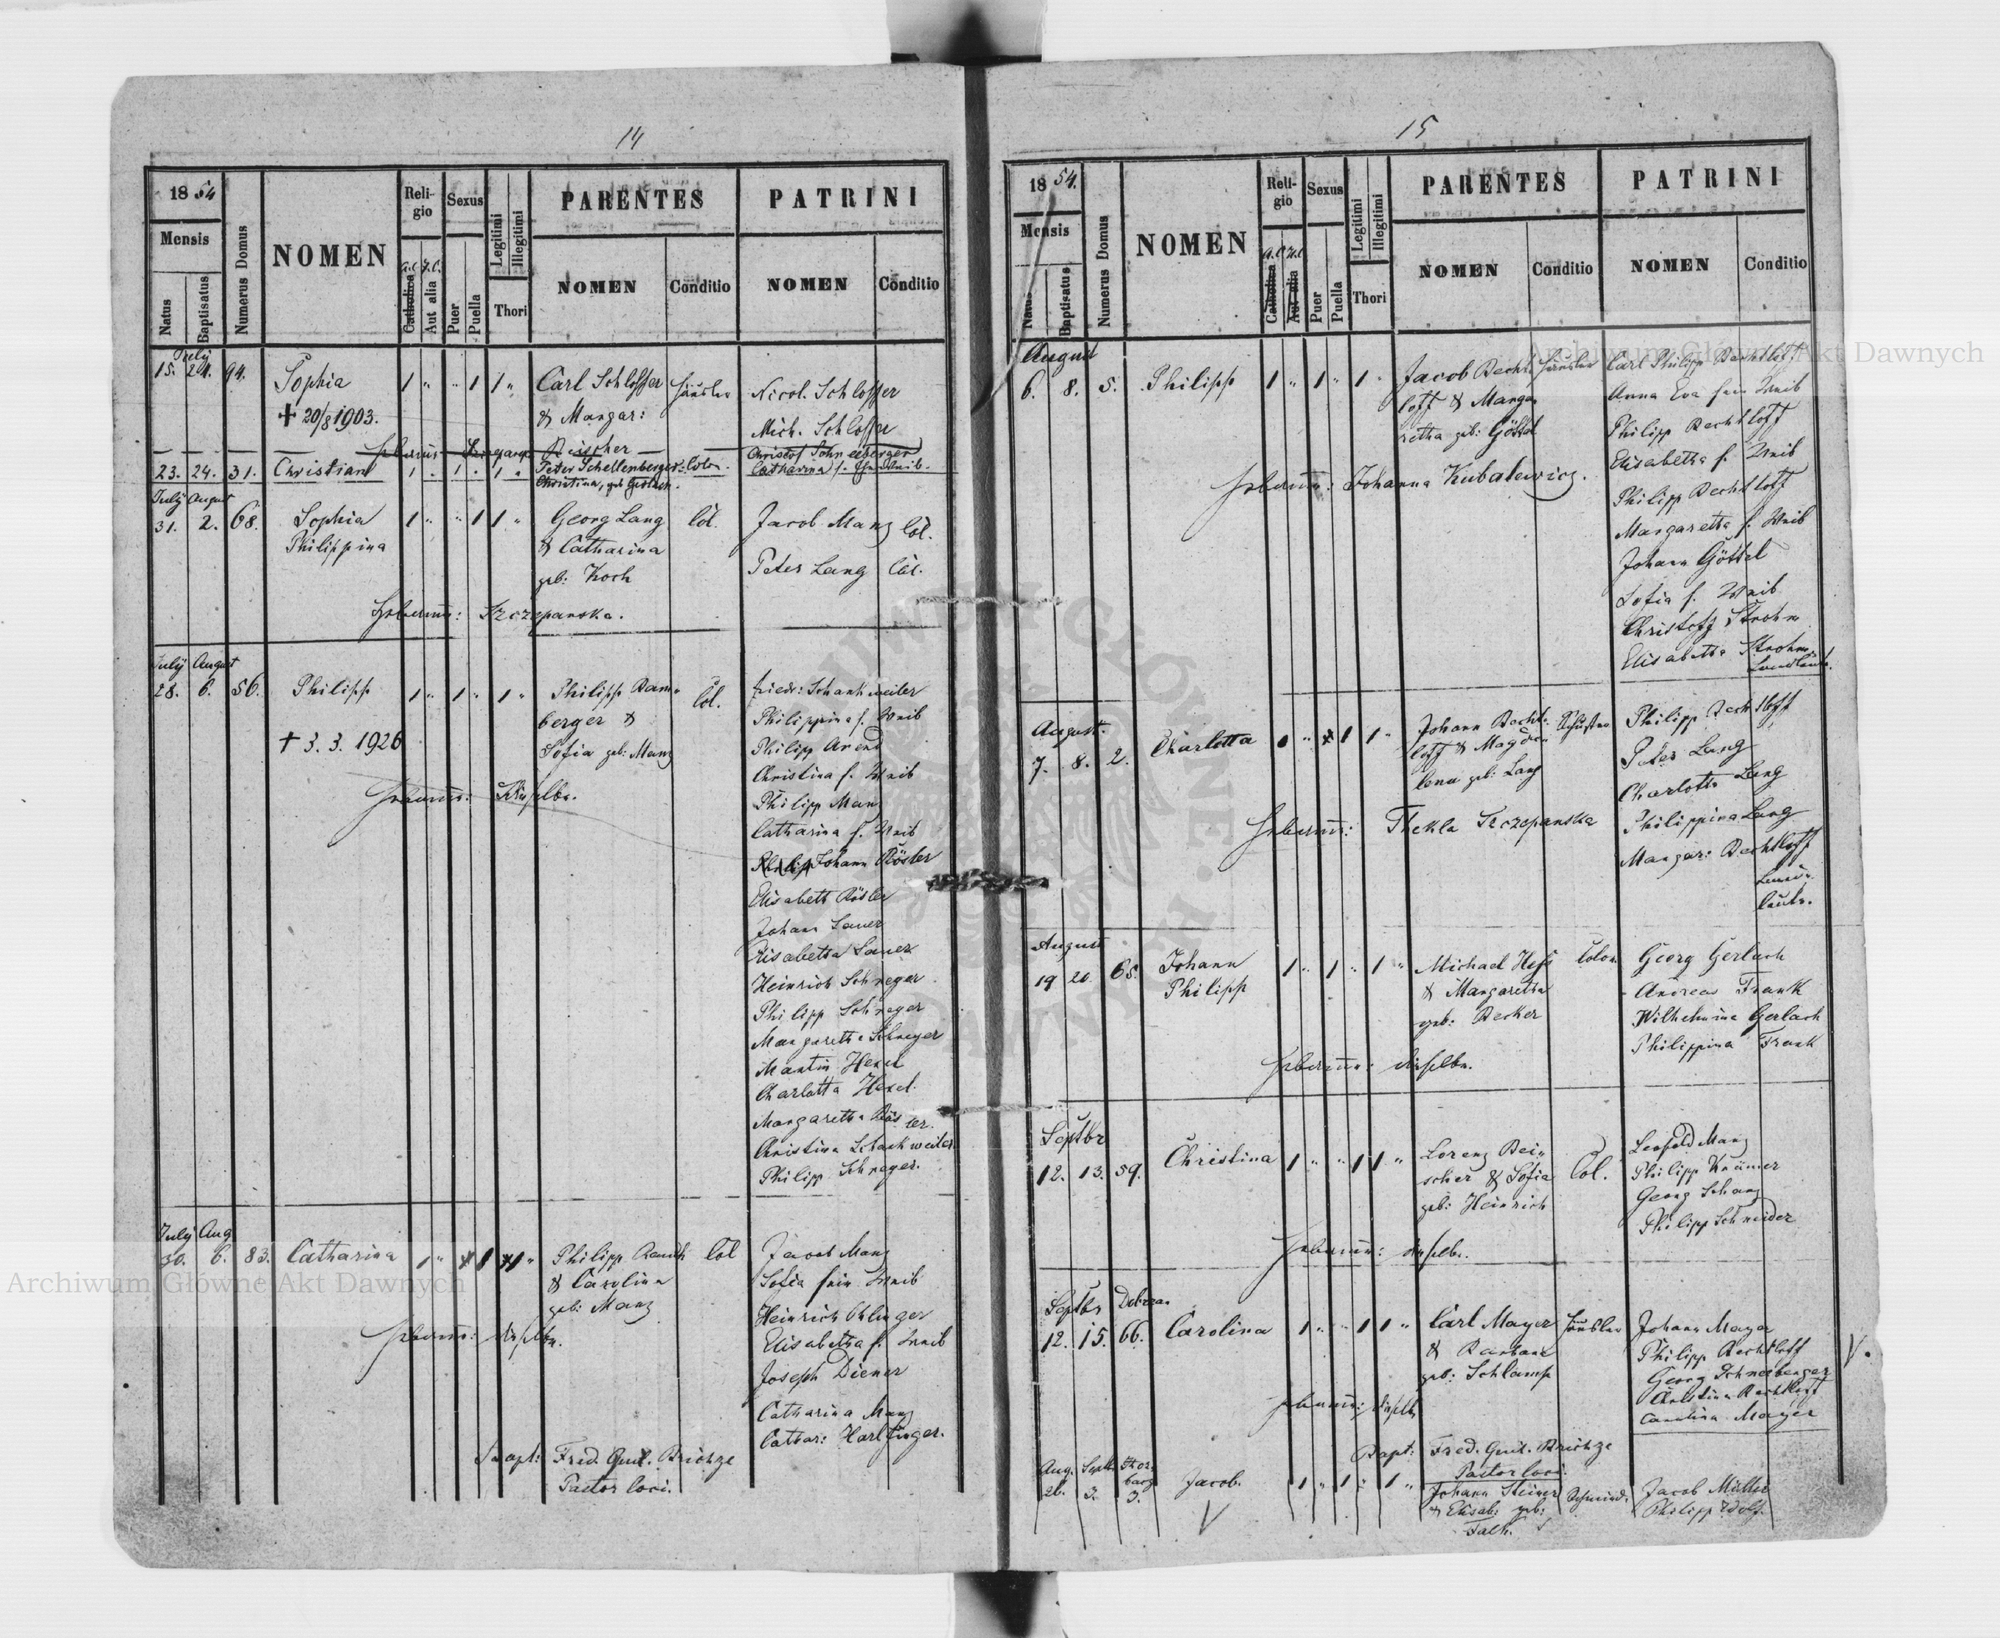 14
1854
Mensis
Natus
Baptisatus
Numerus Domus
NOMEN
Reli-
gio
a.C. H.C.
Catholica
Aut alia
Sexus
Puer
Puella
Legitimi
Illegitimi
Thori
PARENTES
NOMEN
Conditio
PATRINI
NOMEN
Conditio
July
15. 21. 94. Sophia 1 " " 1 1 " Carl Schlosser Häusler Nicol. Schlosser
+ 20/8 1903. & Margar: Mich. Schlosser
Hebamme: Reischer
23. 24. 31. Christian 1 . 1 . 1 " Peter Schellenberger Colon. Christof Schneeberger
Christina, geb. Gerlach. Catharina s. Ehe Weib.
July August
31. 2. 68. Sophia 1 " " 1 1 " Georg Lang Col. Jacob Manz Col.
Philippina & Catharina
geb: Koch Peter Lang Col.
Hebamme: Szczepanska.
July August
28. 6. 56. Philipp 1 " 1 " 1 " Philipp Bam- Col. Friedr: Schankweiler
berger & Philippina s. Weib
+ 3. 3. 1926 Sofia geb: Manz Philipp Arend
Christina s. Weib
Hebamme: Dieselbe. Philipp Manz
Catharina s. Weib
Johann Rösler
Elisabeth Rösler
Johann Sauer
Elisabetha Sauer
Heinrich Schreyer
Philipp Schreyer
Margaretha Schreyer
Martin Hexel
Charlotta Hexel.
Margaretha Rösler.
Christina Schankweiler
Philipp Schreyer.
July Aug
30. 6. 83. Catharina 1 " 1 1 " Philipp Rauch Col Jacob Manz
& Carolina Sofia sein Weib
geb: Manz Heinrich Ohlinger
Hebamme: dieselbe. Elisabetha s. Weib
Joseph Diener
Catharina Manz
Cathar: Harlfinger.
Bapt: Fred. Guil. Brichze
Pastor loci.
15
1854.
Mensis
Natus
Baptisatus
Numerus Domus
NOMEN
Reli-
gio
a.C H.C
Catholica
Aut alia
Sexus
Puer
Puella
Legitimi
Illegitimi
Thori
PARENTES
NOMEN
Conditio
PATRINI
NOMEN
Conditio
August
6. 8. 5. Philipp 1 " 1 " 1 " Jacob Becht- Häusler Carl Philipp Bechtloff
loff & Marga- Anna Eva sein Weib
retha geb: Göttel Philipp Bechtloff
Elisabetha s. Weib
Hebamme: Johanna Kubalewicz. Philipp Bechtloff
Margaretha s. Weib
Johann Göttel
Sofia s. Weib
Christof Strohm
Elisabetha Strohm
Landleute.
August.
7. 8. 2. Charlotta 1 " 1 1 " Johann Becht- Schuster Philipp Bechtloff
loff & Magda- Peter Lang
lena geb: Lang Charlotta Lang
Hebamme: Thekla Szczepanska Philippina Lang
Margar: Bechtloff
Land-
leute.
August
19 20. 65. Johann 1 " 1 " 1 " Michael Hess Colon Georg Gerlach
Philipp & Margaretha Andreas Frank
geb: Becker Wilhelmina Gerlach
Hebamme: dieselbe. Philippina Frank
Septbr
12. 13. 59. Christina 1 " " 1 1 " Lorenz Rei- Col. Leopold Manz
scher & Sofia Philipp Krämer
geb: Heinrich Georg Schanz
Hebamme: dieselbe. Philipp Schneider
Septbr
12. 15. 66. Carolina 1 " " 1 1 " Carl Mayer Häusler Johann Mayer
& Barbara Philipp Bechtloff
geb: Schlamp Georg Schneeberger
Hebamme: dieselbe Christina Bechtloff
Carolina Mayer
Bapt: Fred. Guil. Brichze
Pastor loci.
Aug. Septb.
26. 3. 3. Jacob. 1 " 1 : 1 " Johann Steiner Schmied. Jacob Müller
& Elisab. geb: Philipp Wolf.
Archiwum Główne Akt Dawnych
Archiwum Główne Akt Dawnych